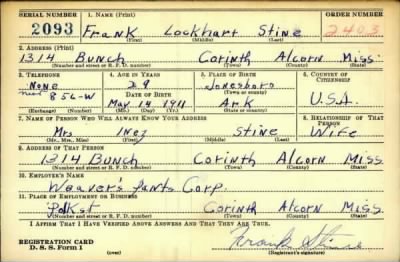 SERIAL NUMBER 1. NAME (Print) ORDER NUMBER
2093 Frank Lockhart Stine 2403
(First) (Middle) (Last)
2. ADDRESS (Print)
1314 Bunch Corinth Alcorn Miss.
(Number and street or R. F. D. number) (Town) (County) (State)
3. TELEPHONE 4. AGE IN YEARS 5. PLACE OF BIRTH 6. COUNTRY OF CITIZENSHIP
None 29 Jonesboro
856-W DATE OF BIRTH (Town or county) U.S.A.
May 14 1911 Ark
(Exchange) (Number) (Mo.) (Day) (Yr.) (State or country)
7. NAME OF PERSON WHO WILL ALWAYS KNOW YOUR ADDRESS 8. RELATIONSHIP OF THAT PERSON
Mrs Inez Stine Wife
(Mr., Mrs., Miss) (First) (Middle) (Last)
9. ADDRESS OF THAT PERSON
1314 Bunch Corinth Alcorn Miss
(Number and street or R. F. D. number) (Town) (County) (State)
10. EMPLOYER'S NAME
Weaver's Pants Corp.
11. PLACE OF EMPLOYMENT OR BUSINESS
Polk st Corinth Alcorn Miss
(Number and street or R. F. D. number) (Town) (County) (State)
I AFFIRM THAT I HAVE VERIFIED ABOVE ANSWERS AND THAT THEY ARE TRUE.
REGISTRATION CARD
D. S. S. Form 1 Frank Stine
(Registrant's signature)